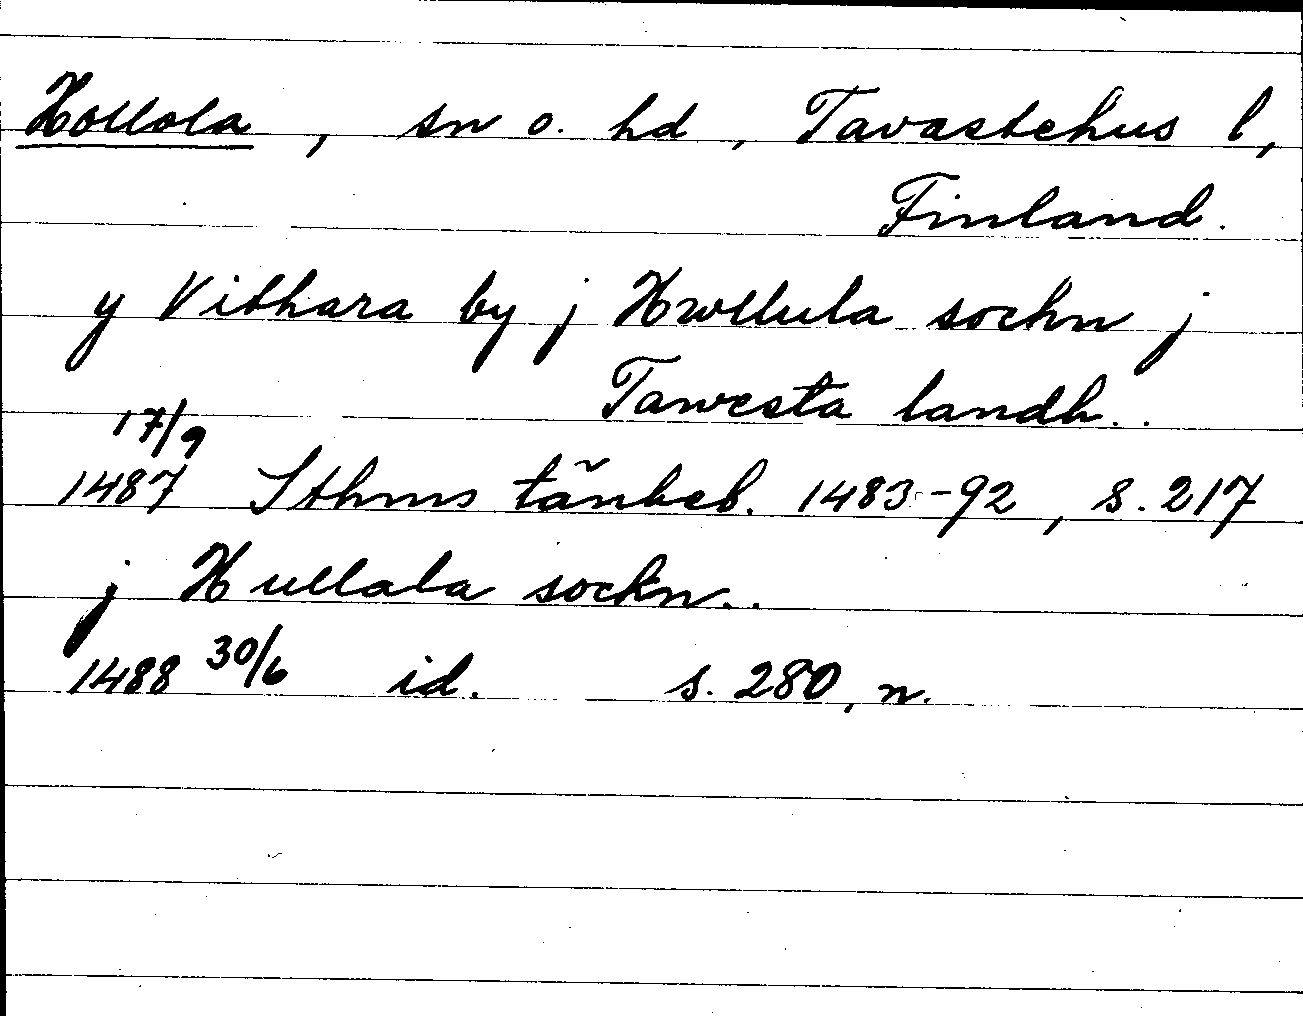 Hollola, sn o. hd, Tavastehus l,
Finland.
y Vithara by j Hwllula sochn j
Tawesta landh..
17/9
1487 Sthms tänkeb. 1483-92, s. 217
j Hullala sockn..
1488 30/6 id. s. 280, n.